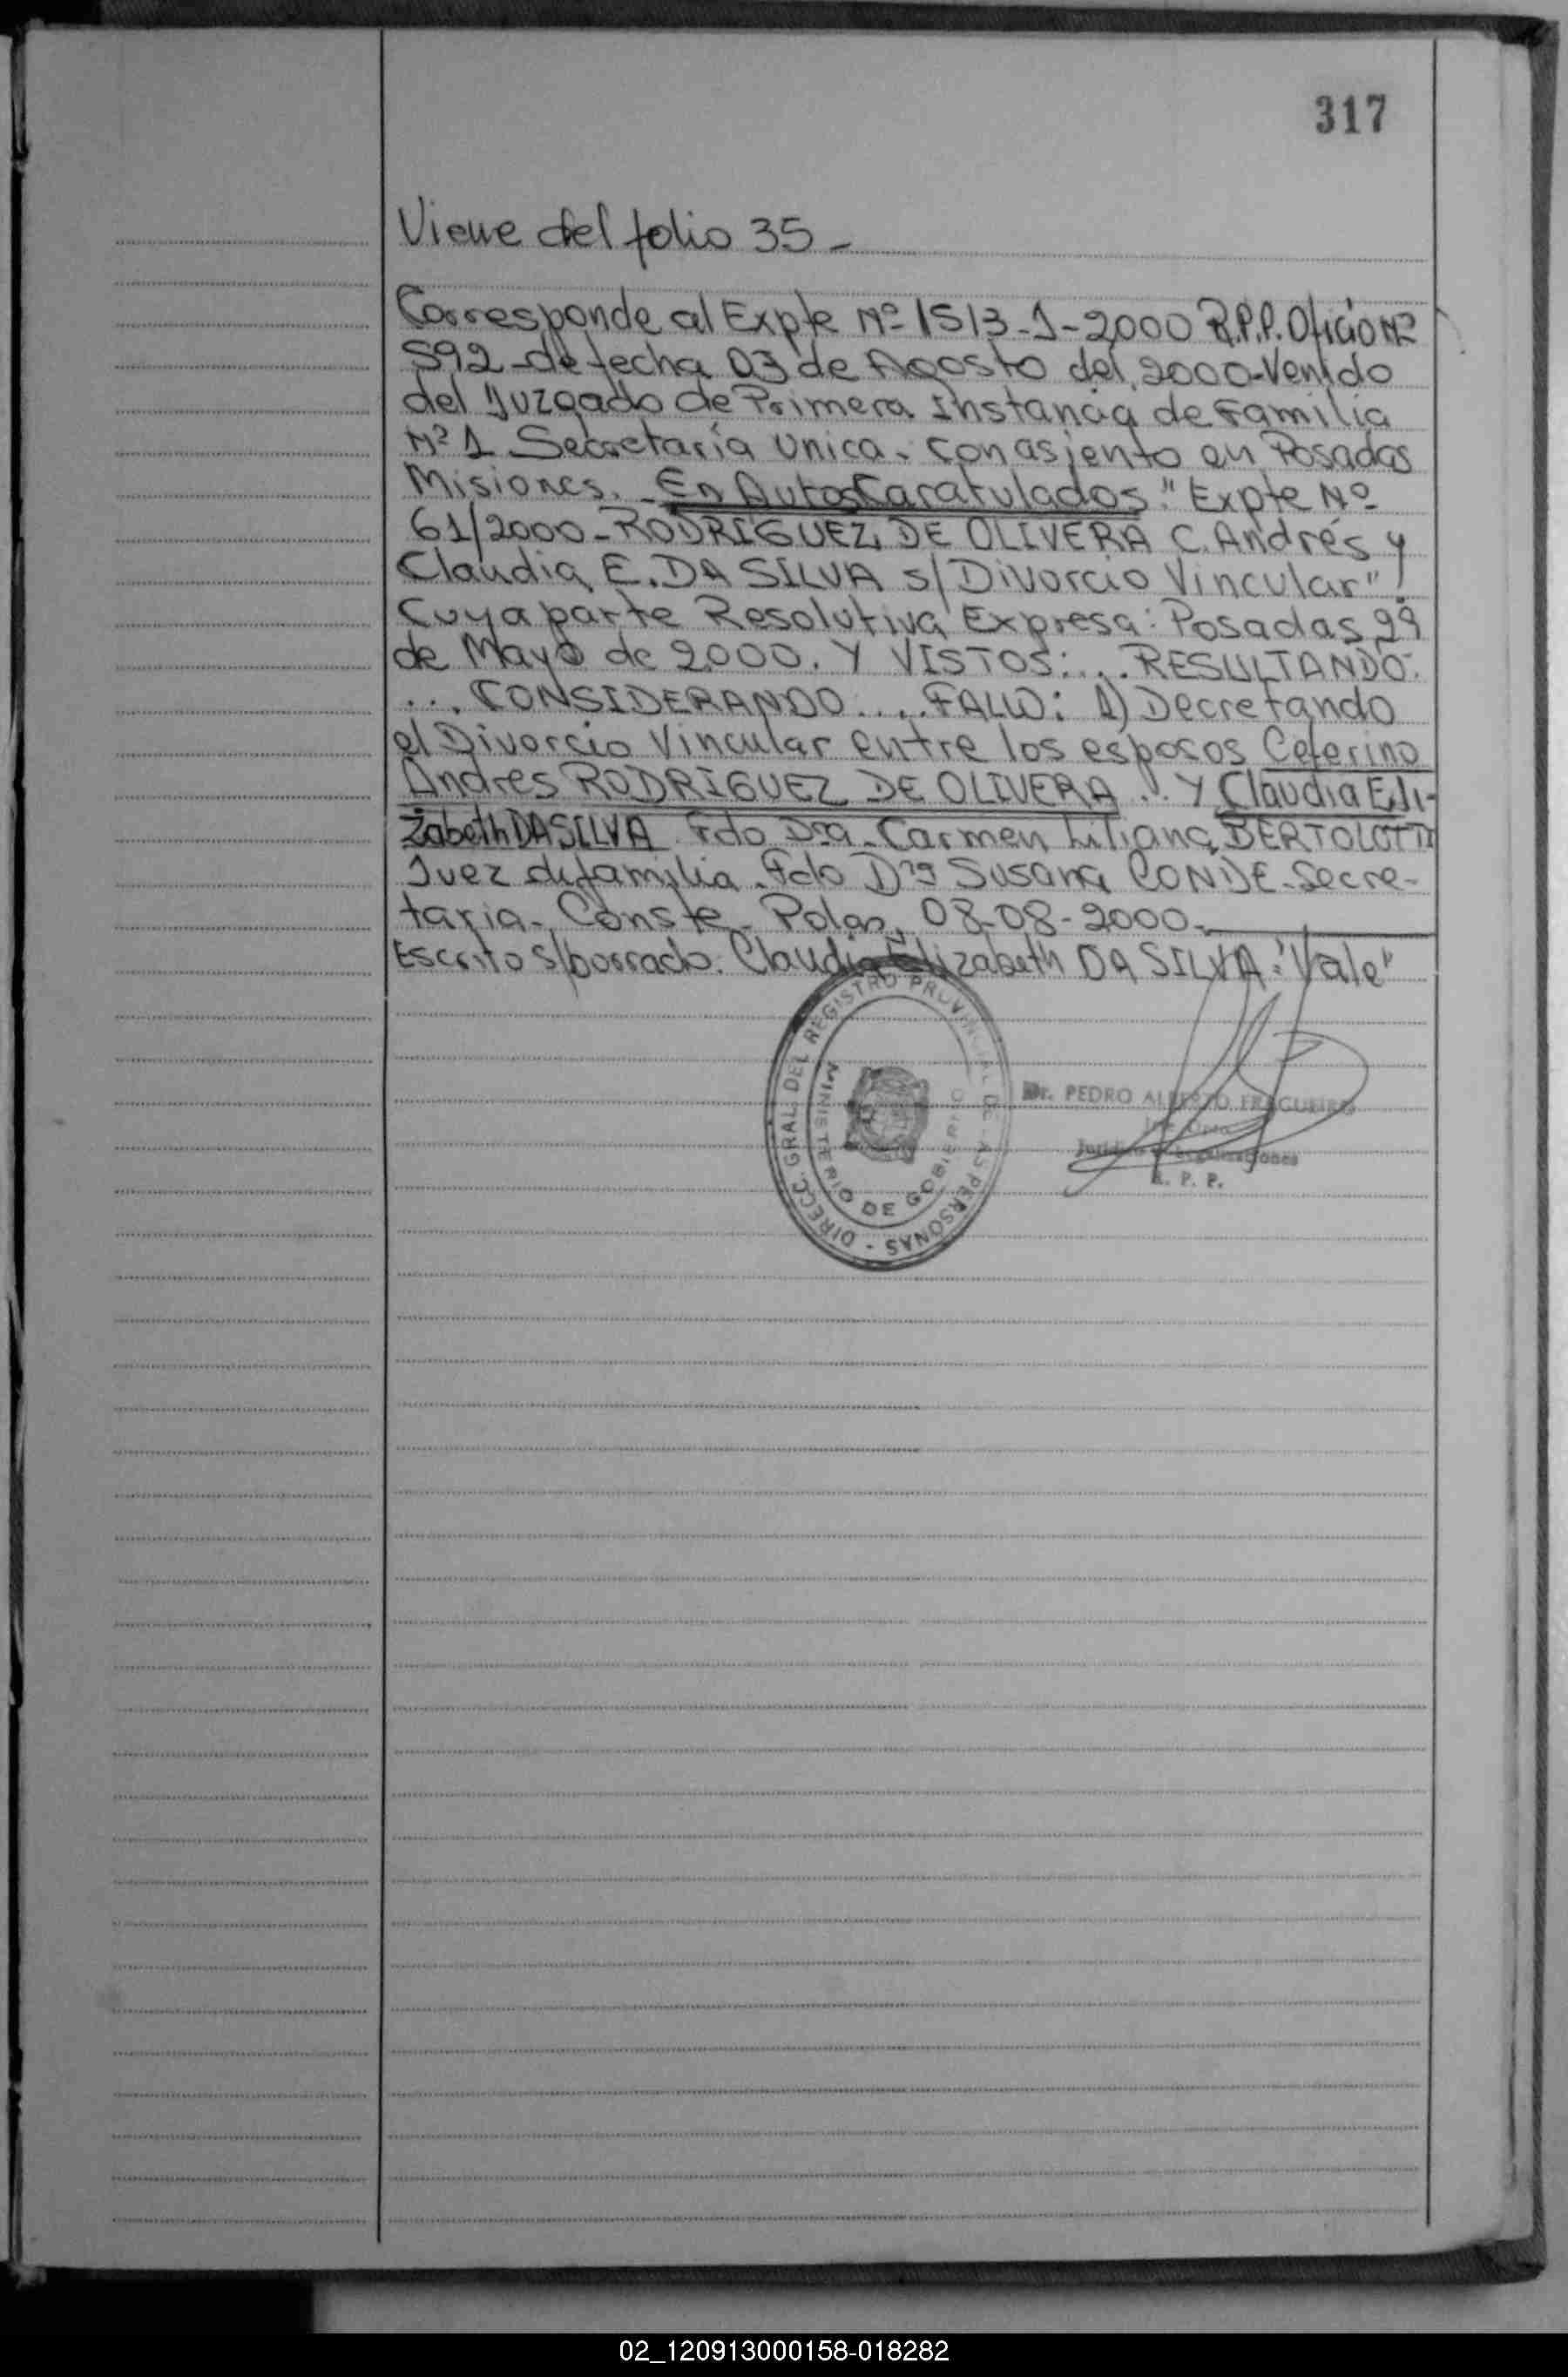 317
Viene del folio 35-
Corresponde al Expte Nº 1513-1-2000 R.P.P. Oficio Nº
592-de fecha 03 de Agosto del 2000-Venido
del Juzgado de Primera Instancia de Familia
Nº 1 Secretaría Unica. con asiento en Posadas
Misiones. En Autos Caratulados: "Expte Nº
61/2000-RODRIGUEZ DE OLIVERA C. Andrés y
Claudia E. DA SILVA s/Divorcio Vincular"!
Cuya parte Resolutiva Expresa: Posadas 29
de Mayo de 2000. Y VISTOS:.... RESULTANDO:
... CONSIDERANDO.... FALLO: 1) Decretando
el Divorcio Vincular entre los esposos Ceferino
Andres RODRIGUEZ DE OLIVERA... Y Claudia Eli-
zabeth DA SILVA. Fdo Dra. Carmen Liliana BERTOLOTTI
Juez de familia. Fdo Dra Susana CONDE-Secre-
taria-Conste-Pdas, 08-08-2000-
Escrito s/borrado: Claudia Elizabeth DA SILVA: "Vale"
DIRECC. GRAL. DEL REGISTRO PROVINCIAL DE LAS PERSONAS -
MINISTERIO DE GOBIERNO
Dr. PEDRO ALBERTO FRAGUEIRO
Jefe Dpto.
Jurídico y Legalizaciones
R. P. P.
02_120913000158-018282